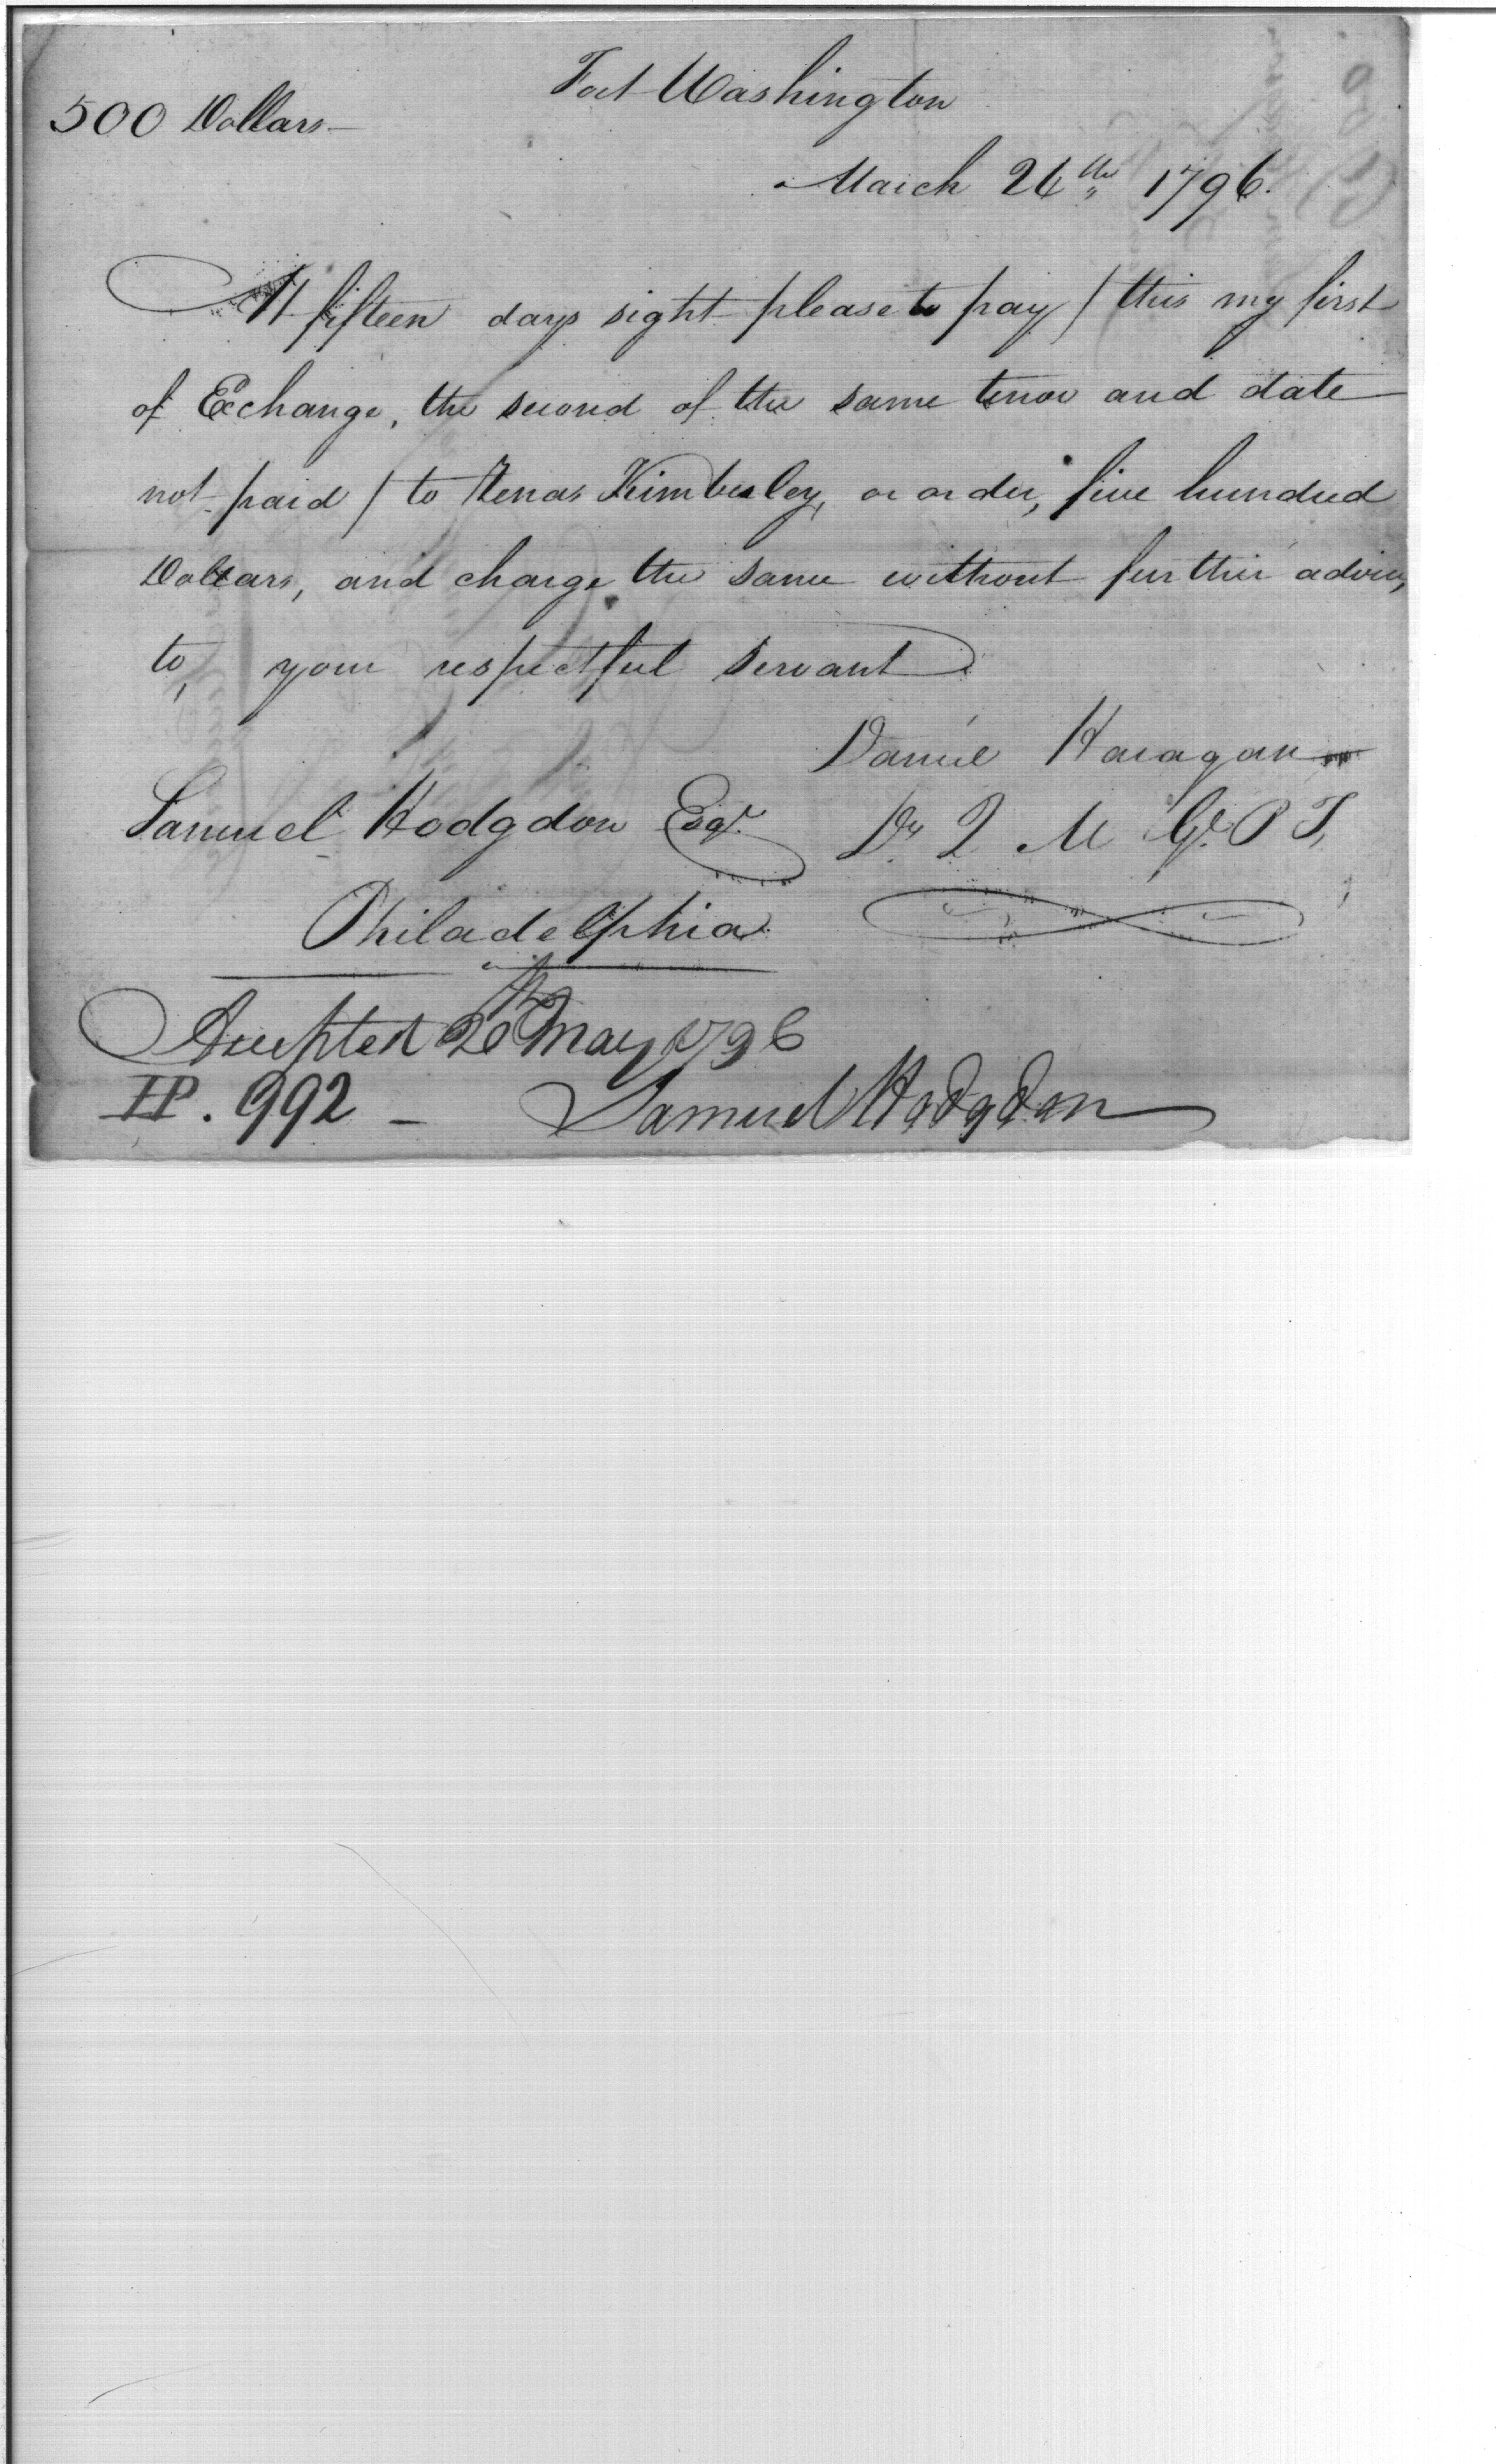 Fort Washington
500 Dollars
March 26th 1796.
At fifteen days sight please to pay / this my first
of Exchange, the second of the same tenor and date
not paid / to Zenas Kimberley, or order, five hundred
Dollars, and charge the same without further advice,
to, your respectful servant
Daniel Haragan
Samuel Hodgdon Esqr. Dy Q M Gl P T,
Philadelphia
Accepted 20th May 1796
IP. 992 Samuel Hodgdon